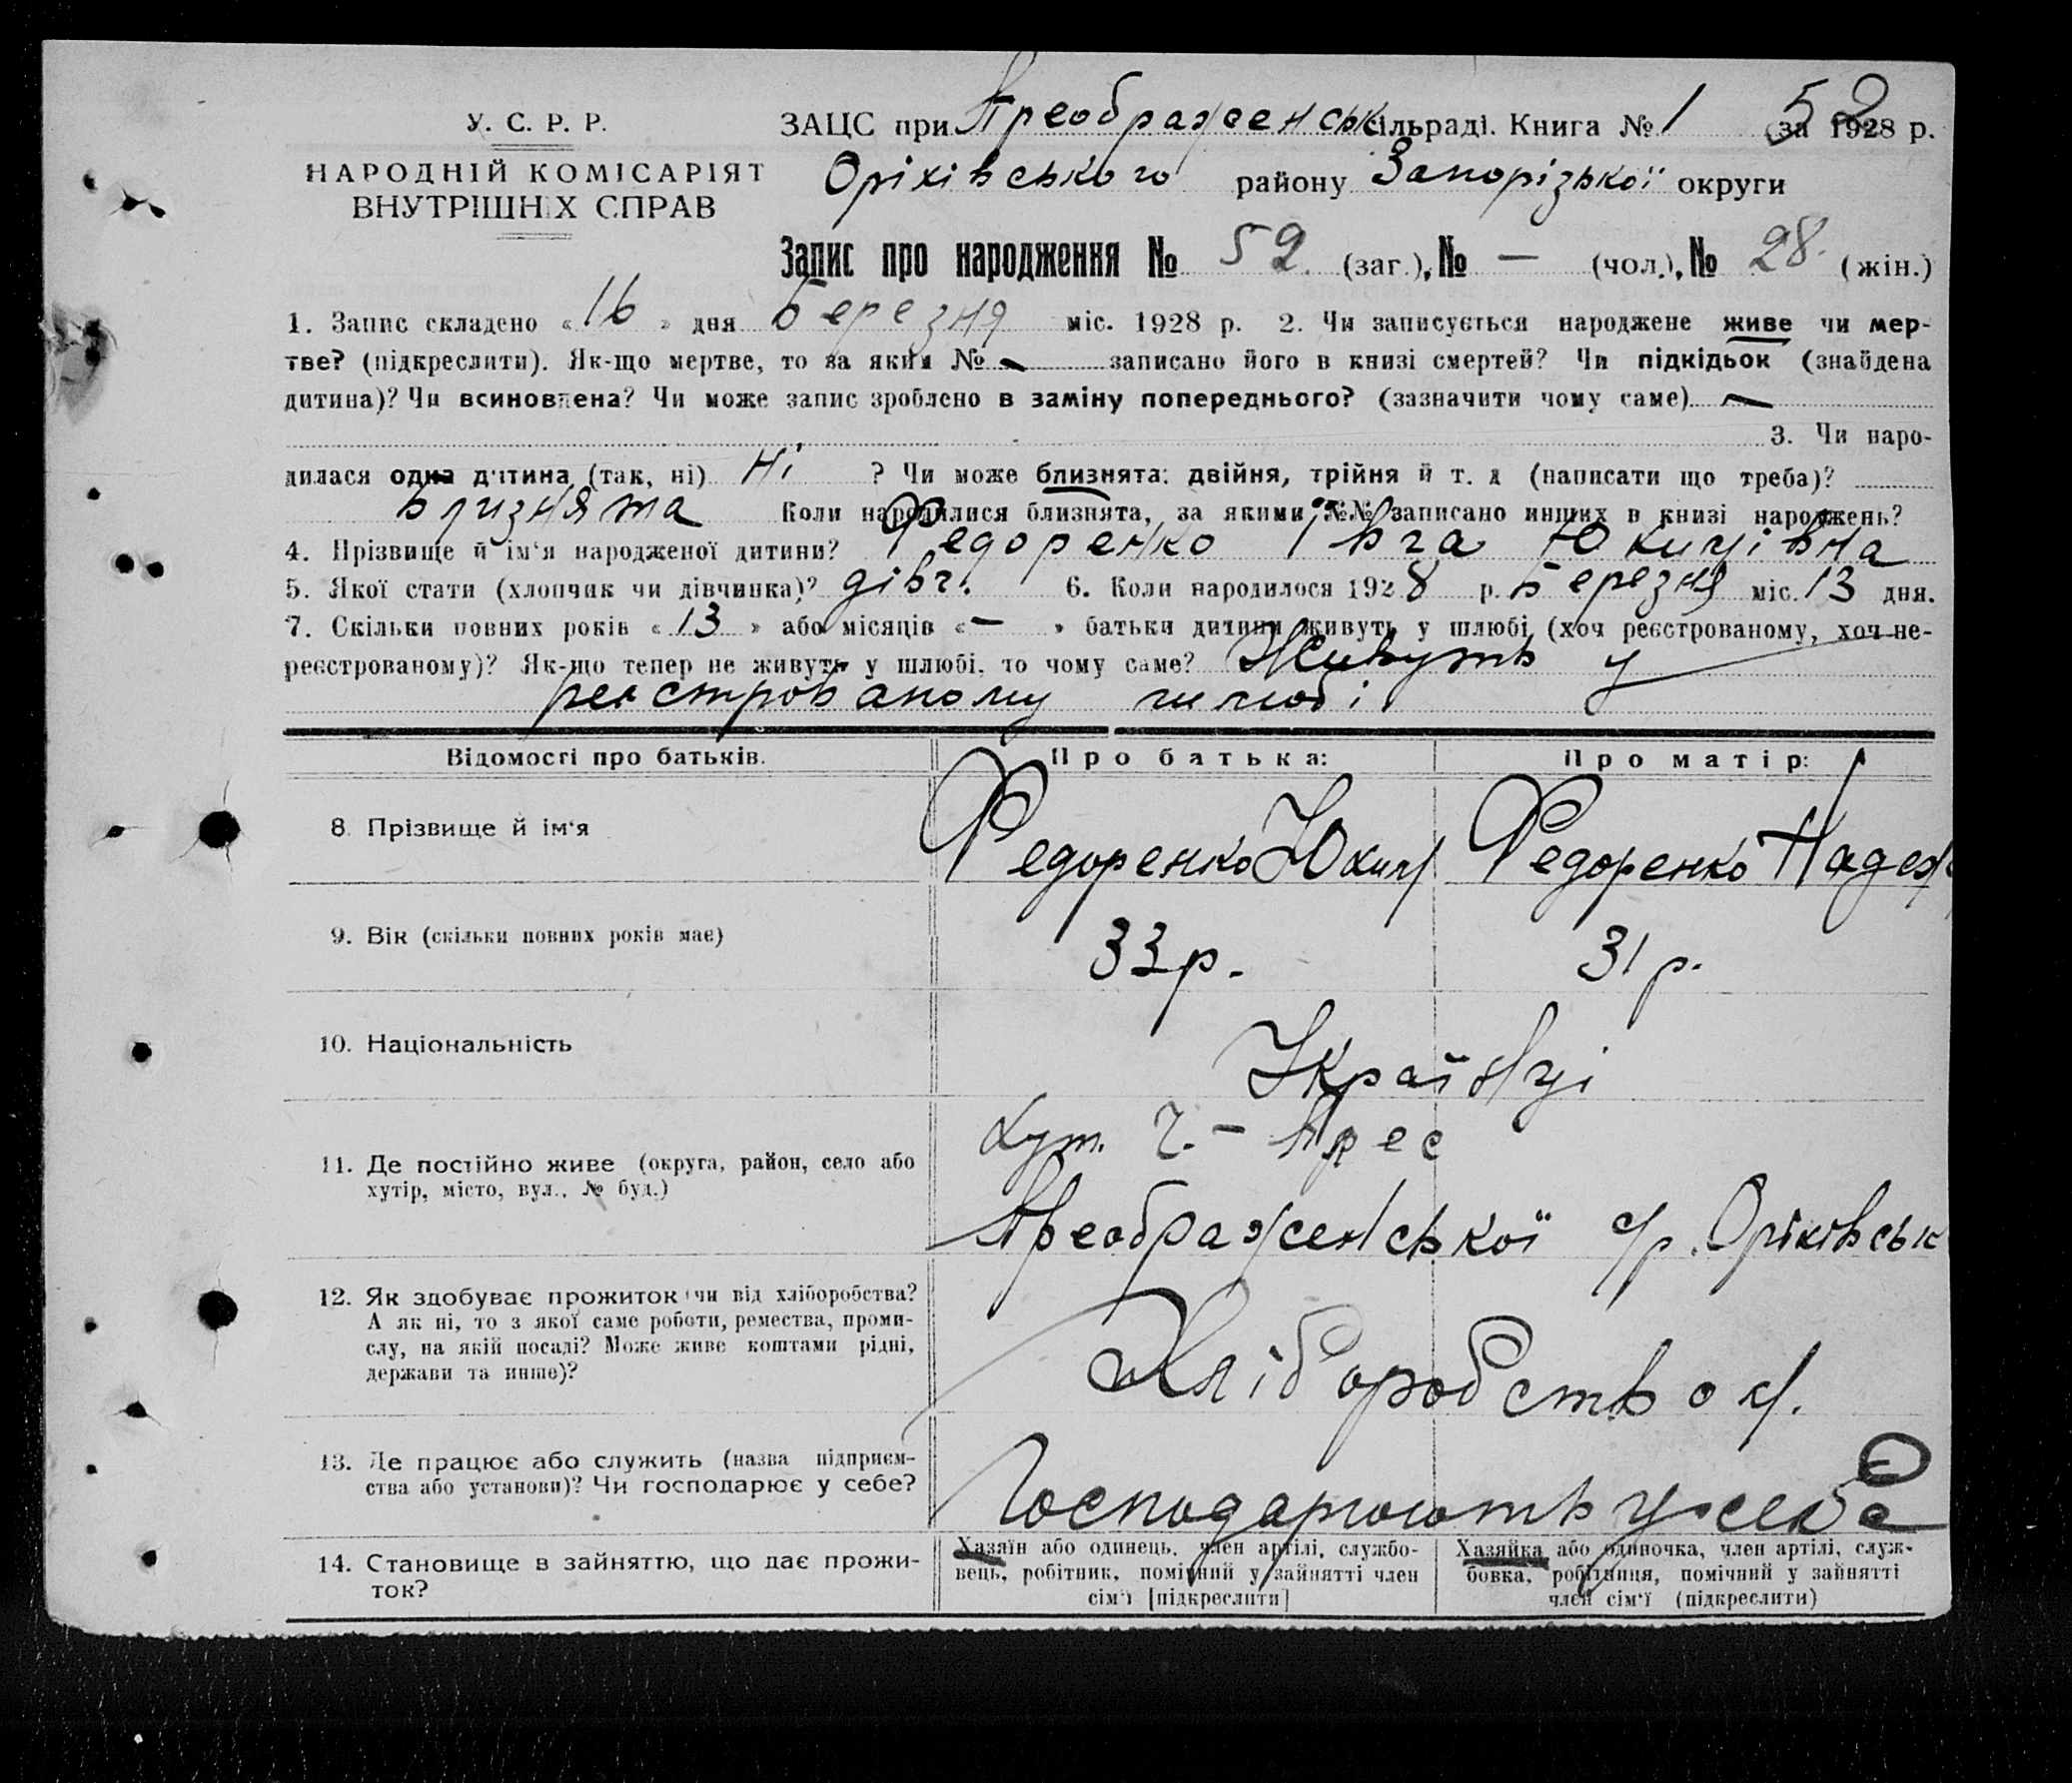 У. С. Р. Р.
НАРОДНІЙ КОМІСАРІЯТ
ВНУТРІШНІХ СПРАВ
52
ЗАЦС при Преображенськ сільраді. Книга № 1 за 1928 р.
Оріхівського району Запорізької округи
Запис про народження № 52 (заг.), № — (чол.), № 28 (жін.)
1. Запис складено « 16 » дня Березня міс. 1928 р. 2. Чи записується народжене живе чи мер-
тве? (підкреслити). Як-що мертве, то за яким № — записано його в книзі смертей? Чи підкідьок (знайдена
дитина)? Чи всиновлена? Чи може запис зроблено в заміну попереднього? (зазначити чому саме) —
3. Чи наро-
дилася одна дитина (так, ні) Ні ? Чи може близнята: двійня, трійня й т. д (написати що треба)?
близнята Коли народилися близнята, за якими №№ записано инших в книзі народжень?
4. Прізвище й ім'я народженої дитини? Федоренко Івга Юхимівна
5. Якої стати (хлопчик чи дівчинка)? дівч. 6. Коли народилося 1928 р. Березня міс. 13 дня.
7. Скільки повних років « 13 » або місяців « — » батьки дитини живуть у шлюбі (хоч реєстрованому, хоч не-
реєстрованому)? Як-що тепер не живуть у шлюбі, то чому саме? Живуть у
реєстрованому шлюбі
Відомості про батьків. Про батька: Про матір:
8. Прізвище й ім'я Федоренко Юхим Федоренко Надеж
9. Вік (скільки повних років має) 33 р. 31 р.
10. Національність Українці
11. Де постійно живе (округа, район, село або
хутір, місто, вул., № буд.)
хут. Ч.-Прес
Преображенської с/р. Оріхівськ
12. Як здобуває прожиток чи від хліборобства?
А як ні, то з якої саме роботи, ремества, проми-
слу, на якій посаді? Може живе коштами рідні,
держави та инше)?
Хліборобством.
13. Де працює або служить (назва підприєм-
ства або установи)? Чи господарює у себе?
Господарюють у себе
14. Становище в зайняттю, що дає прожи-
ток?
Хазяїн або одинець, член артілі, службо-
вець, робітник, помічний у зайнятті член
сім'ї [підкреслити]
Хазяйка або одиночка, член артілі, служ-
бовка, робітниця, помічний у зайнятті
член сім'ї (підкреслити)